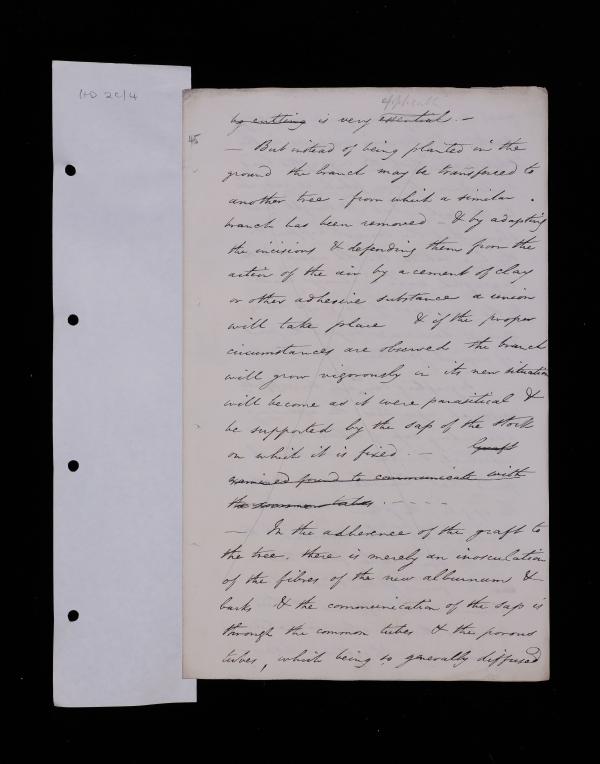 HD 2c/4
by cutting is very essential. -
45
- But instead of being planted in the
ground the branch may be transferred to
another tree - from which a similar
branch has been removed - & by adapting
the incisions & defending them from the
action of the air by a cement of clay
or other adhesive substance a union
will take place & if the proper
circumstances are observed the branch
will grow vigorously in its new situation
will become as it were parasitical &
be supported by the sap of the stock
on which it is fixed. - Graft
examined found to communicate with
the common tubes. - - - -
- In the adherence of the graft to
the tree. there is merely an inosculation
of the fibres of the new alburnum &
barks & the communication of the sap is
through the common tubes & the porous
tubes, which being so generally diffused